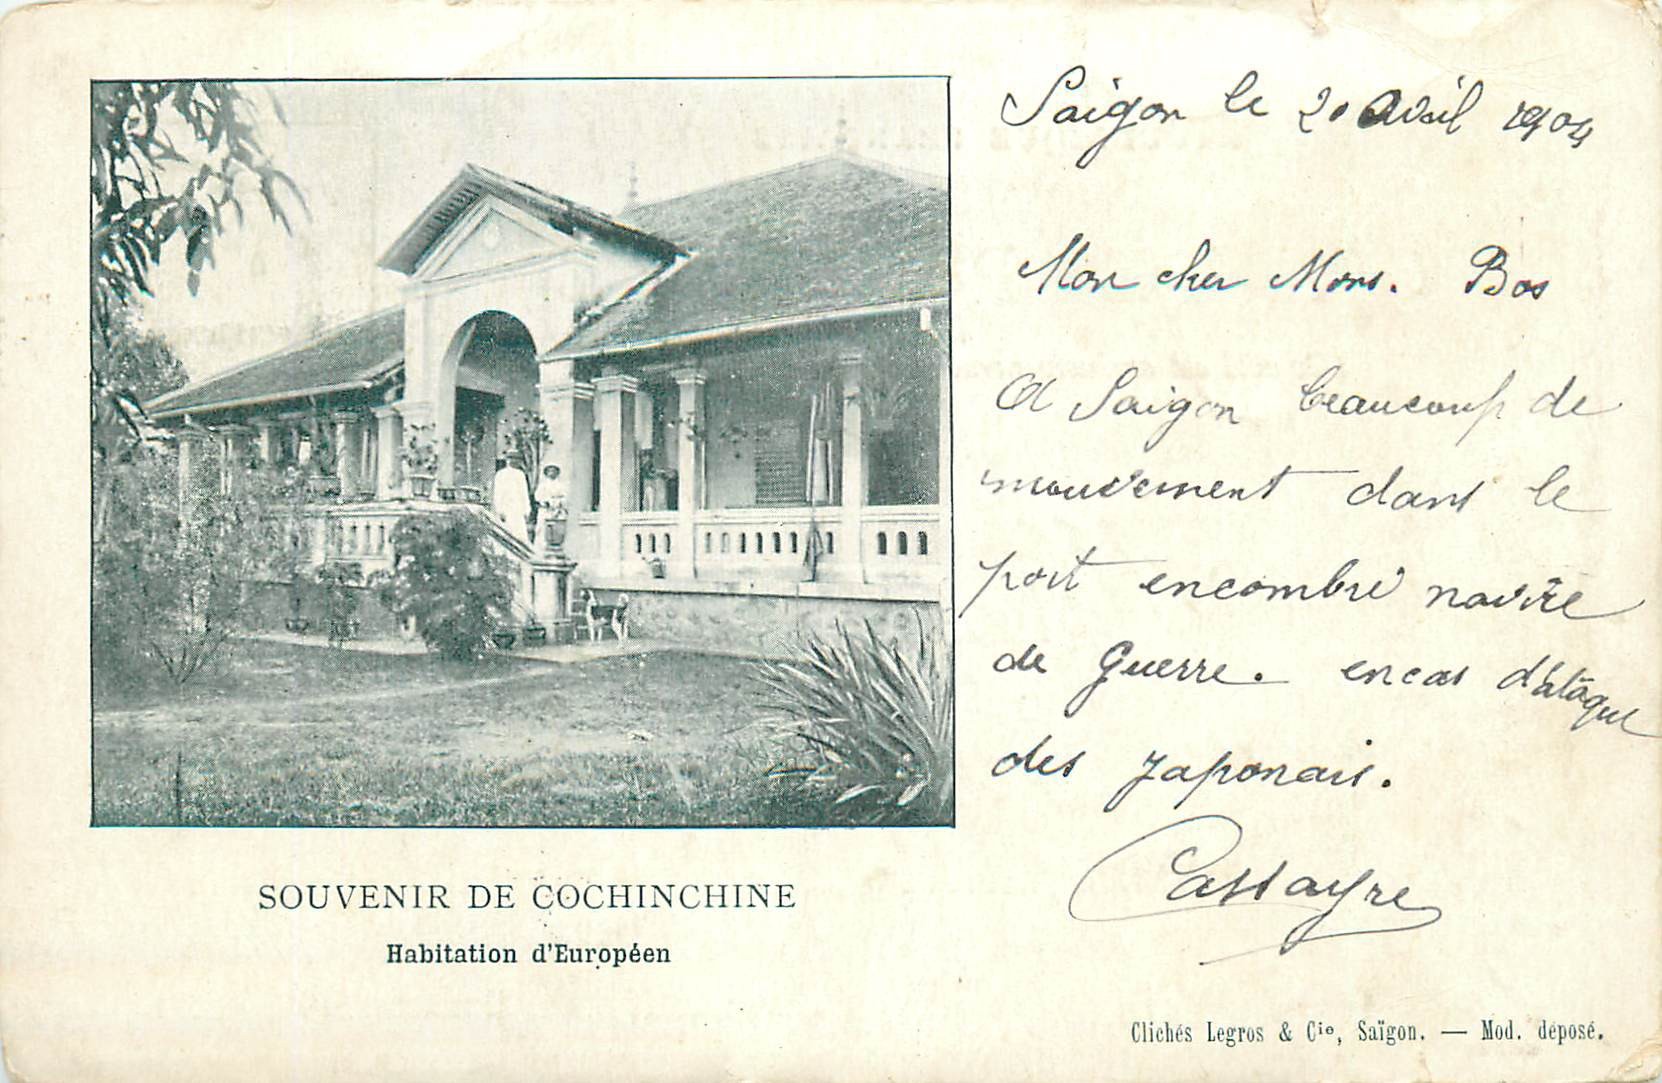 Saigon le 20 Avril 1904
Mon cher Mons. Bos
A Saigon beaucoup de
mouvement dans le
port encombré navire
de Guerre. encas d'atâque
des Japonais.
Cassayre
SOUVENIR DE COCHINCHINE
Habitation d'Européen
Clichés Legros & Cie, Saïgon. — Mod. déposé.